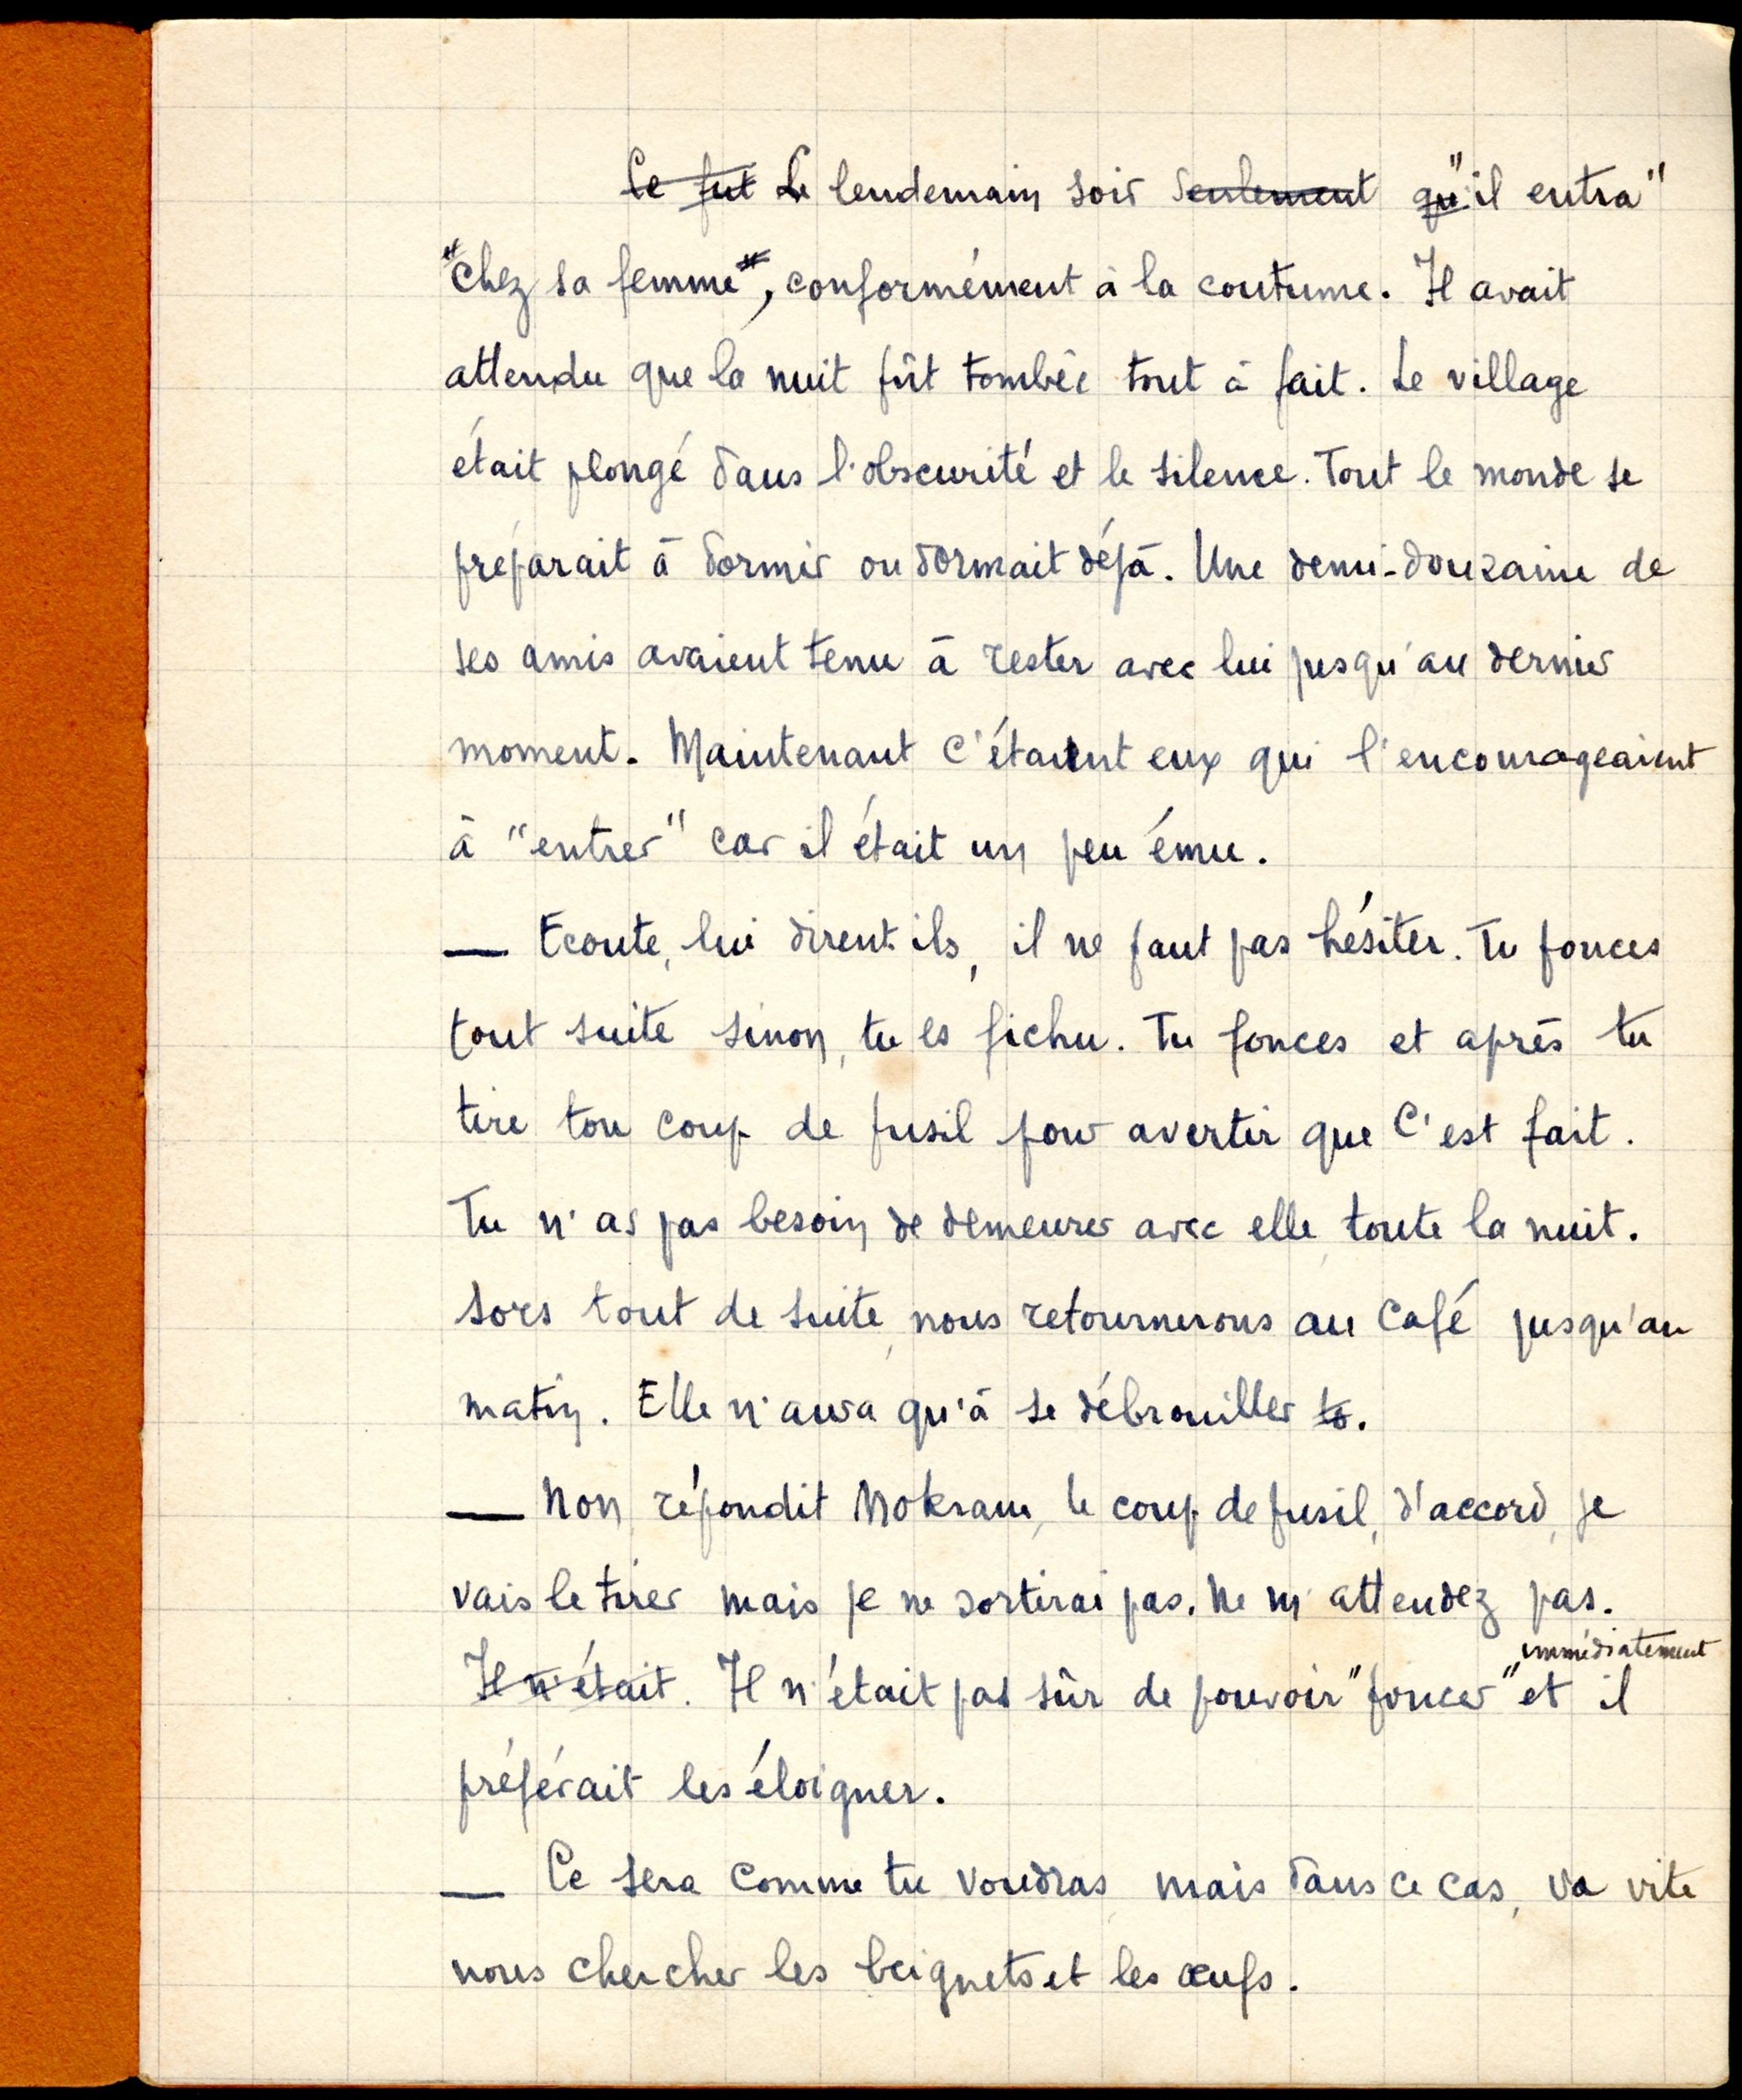 Ce fut Le lendemain soir seulement qu'"il entra"
"chez sa femme", conformément à la coutume. Il avait
attendu que la nuit fût tombée tout à fait. Le village
était plongé dans l'obscurité et le silence. Tout le monde se
préparait à dormir ou dormait déjà. Une demi-douzaine de
ses amis avaient tenu à rester avec lui jusqu'au dernier
moment. Maintenant c'étaient eux qui l'encourageaient
à "entrer" car il était un peu ému.
— Ecoute, lui dirent-ils, il ne faut pas hésiter. Tu fonces
tout suite sinon, tu es fichu. Tu fonces et après tu
tire ton coup de fusil pour avertir que c'est fait.
Tu n'as pas besoin de demeurer avec elle toute la nuit.
Sors tout de suite, nous retournerons au café jusqu'au
matin. Elle n'aura qu'à se débrouiller to.
— Non, répondit Mokrane, le coup de fusil, d'accord, je
vais le tirer mais je ne sortirai pas. Ne m'attendez pas.
immédiatement
Il n'était. Il n'était pas sûr de pouvoir "foncer" et il
préférait les éloigner.
— Ce sera comme tu voudras, mais dans ce cas, va vite
nous chercher les beignets et les œufs.